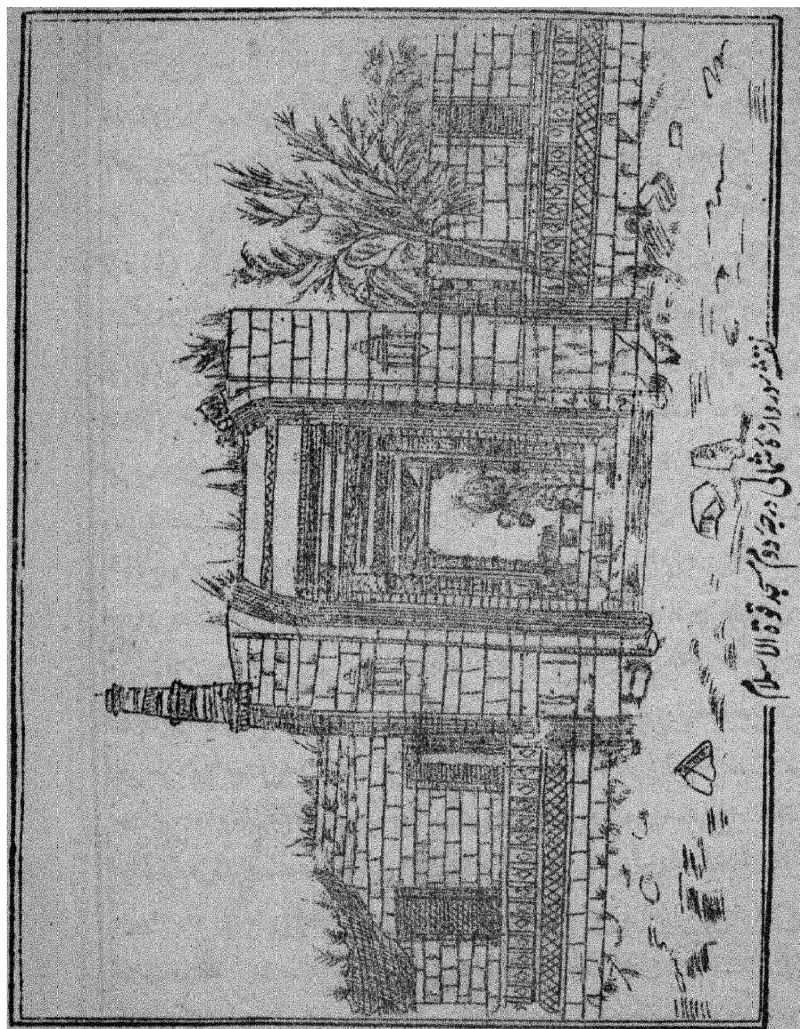 نقشہ دروازہ شمالی درجہ دوم مسجد قوۃ الاسلام